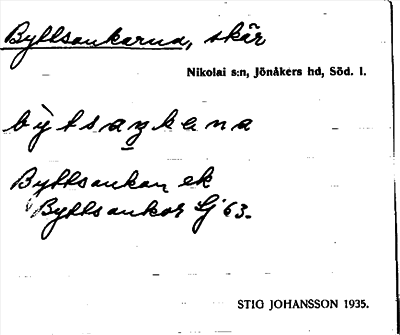 Byttsankarna, skär
Nikolai s:n, Jönåkers hd, Söd. l.
Byttsankan ek
Byttsankor Gj 63.
STIG JOHANSSON 1935.